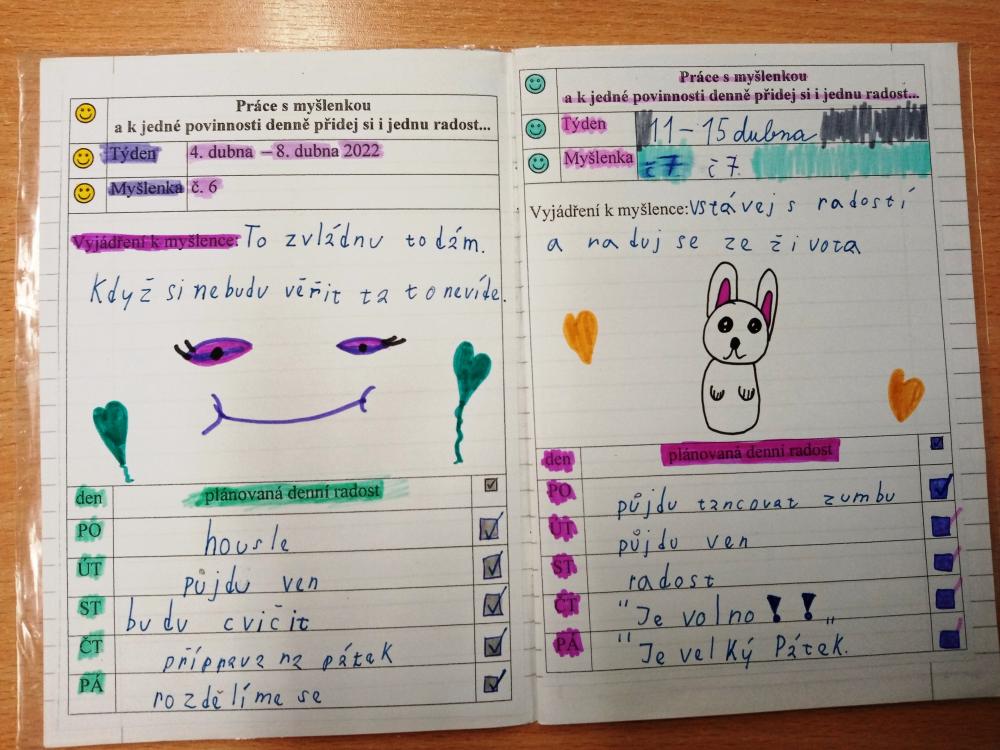 Práce s myšlenkou
a k jedné povinnosti denně přidej si i jednu radost...
Týden 4. dubna – 8. dubna 2022
Myšlenka č. 6
Vyjádření k myšlence: To zvládnu to dám.
Když si nebudu věřit ta to nevíde.
den plánovaná denní radost
PO housle
ÚT půjdu ven
ST budu cvičit
ČT příprava na pátek
PÁ rozdělíme se
Práce s myšlenkou
a k jedné povinnosti denně přidej si i jednu radost...
Týden 11 – 15 dubna
Myšlenka č 7 č 7.
Vyjádření k myšlence: Vstávej s radostí
a raduj se ze života
den plánovaná denní radost
PO půjdu tancovat zumbu
ÚT půjdu ven
ST radost
ČT "Je volno ! ! „
PÁ "Je velký Pátek.